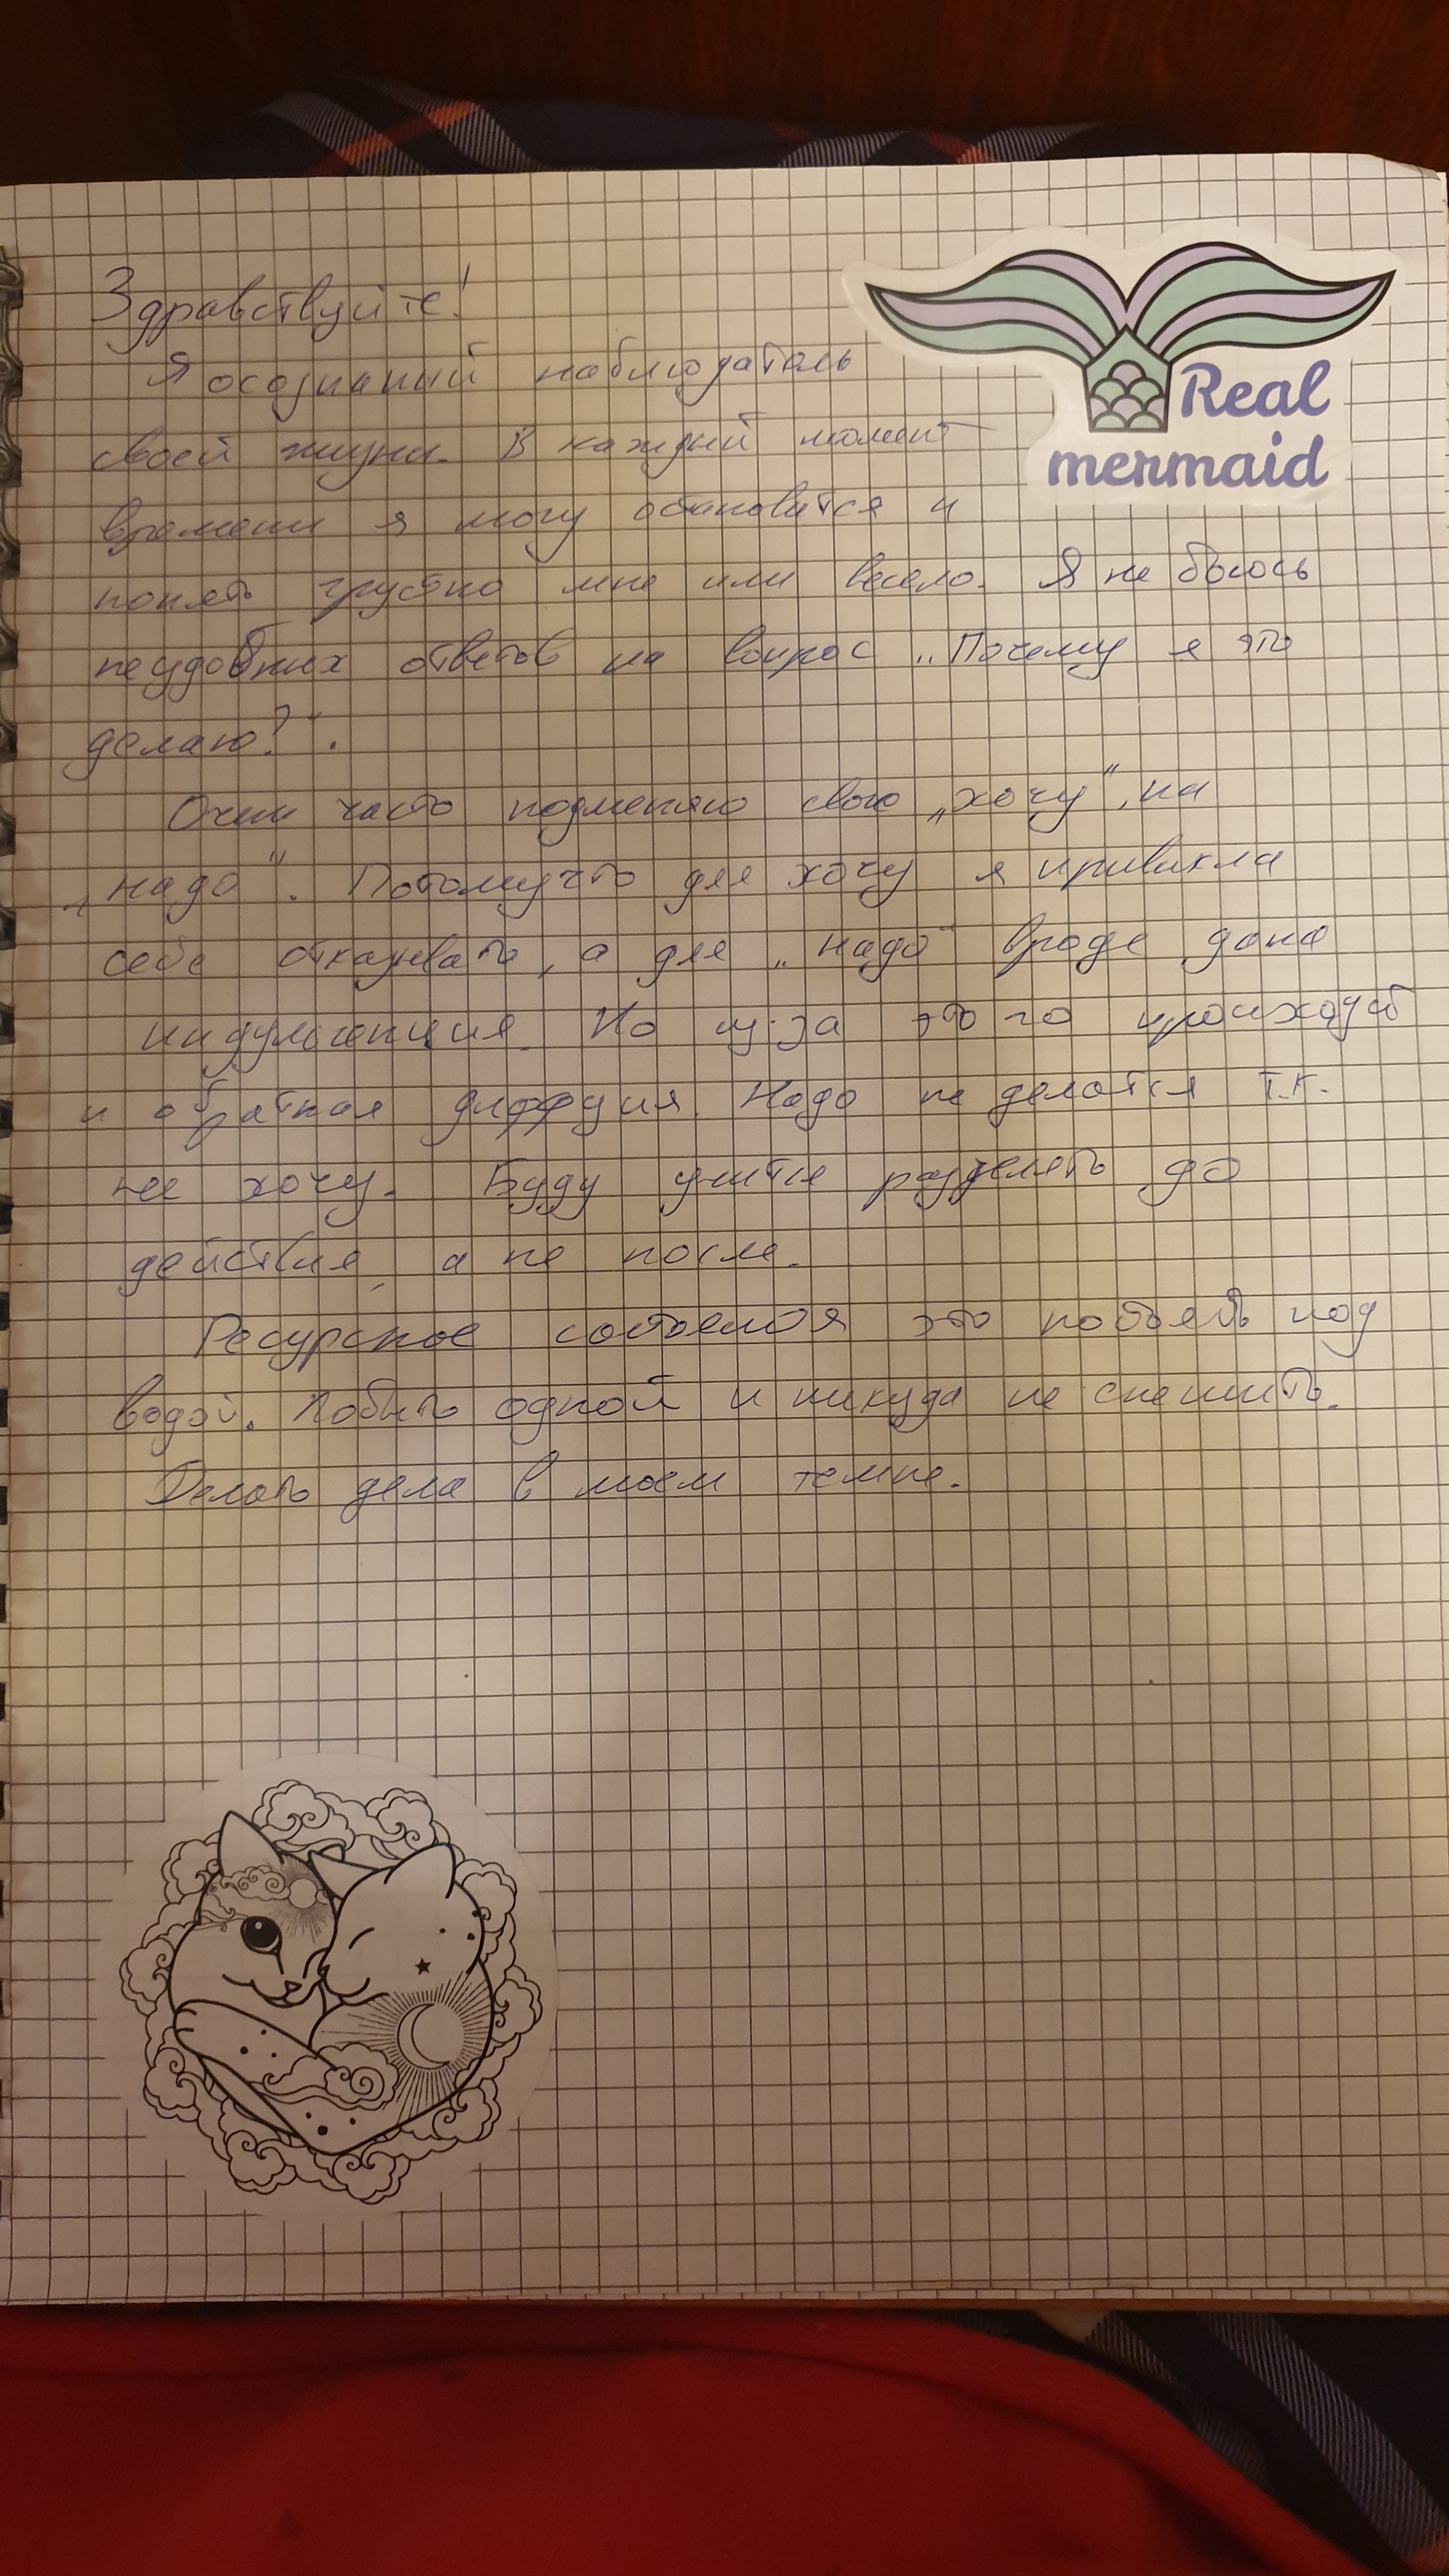 Здравствуйте!
Real
mermaid
Я осознаный наблюдатель
своей жизни. В каждый момент
времени я могу остановится и
понять грустно мне или весело. Я не боюсь
неудобных ответов на вопрос „Почему я это
делаю?“.
Очень часто подменяю свою „хочу“ на
„надо“. Потомучто для хочу я привыкла
себе отказывать, а для „надо“ вроде дана
индульгенция. Но из-за этого происходит
и обратная диффузия. Надо не делается т.к.
не хочу. Буду учится разделять до
действия, а не после.
Ресурсное это постоять под
водой. Побыть одной и никуда не спешить.
Делать дела в моем темпе.